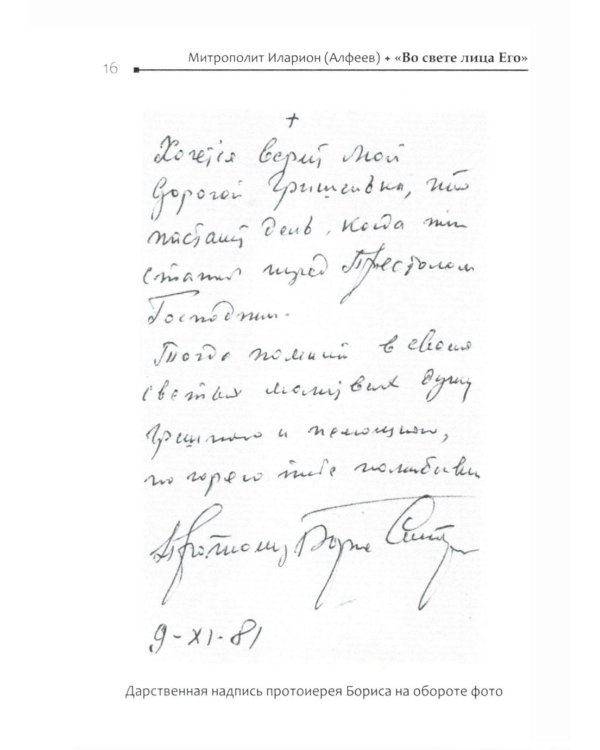 16
Митрополит Иларион (Алфеев) + «Во свете лица Его»
+
Хочется верит мой
дорогой Гришенька, что
настанет день, когда ты
станеш перед Престолом
Господним.
Тогда помяни в своих
светых молитвах душу
грешного и немощного,
но горячо тебя полюбивш
Протоиерей Борис
9-XI-81
Дарственная надпись протоиерея Бориса на обороте фото